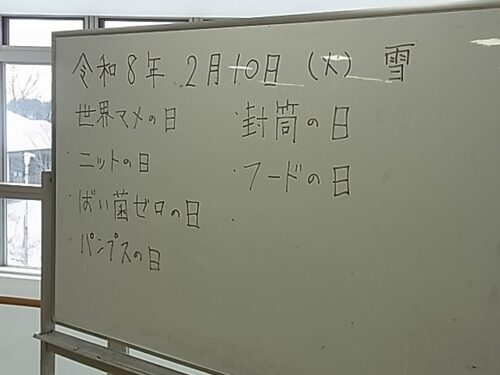 令和8年 2月10日 (火) 雪
世界マメの日
・ニットの日
・ばい菌ゼロの日
・パンプスの日
・封筒の日
・フードの日
・